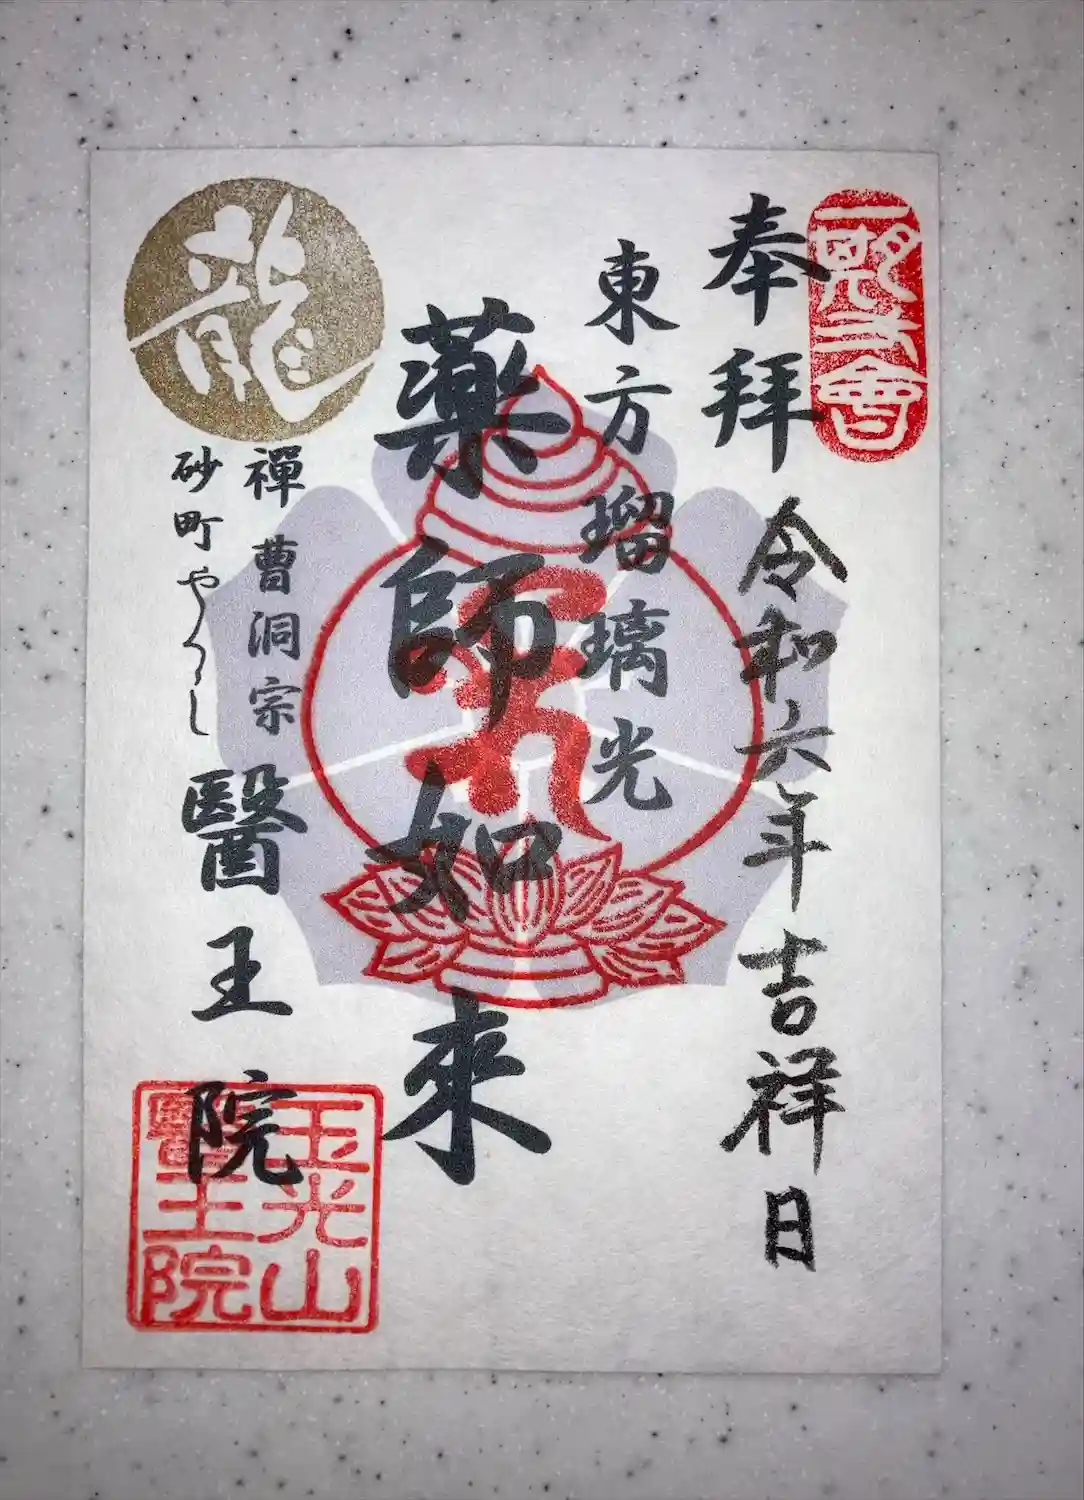 奉拜
令和六年吉祥日
東方瑠璃光
藥師如來
龍
禪曹洞宗
砂町やくし
醫王院
玉光山
醫王院